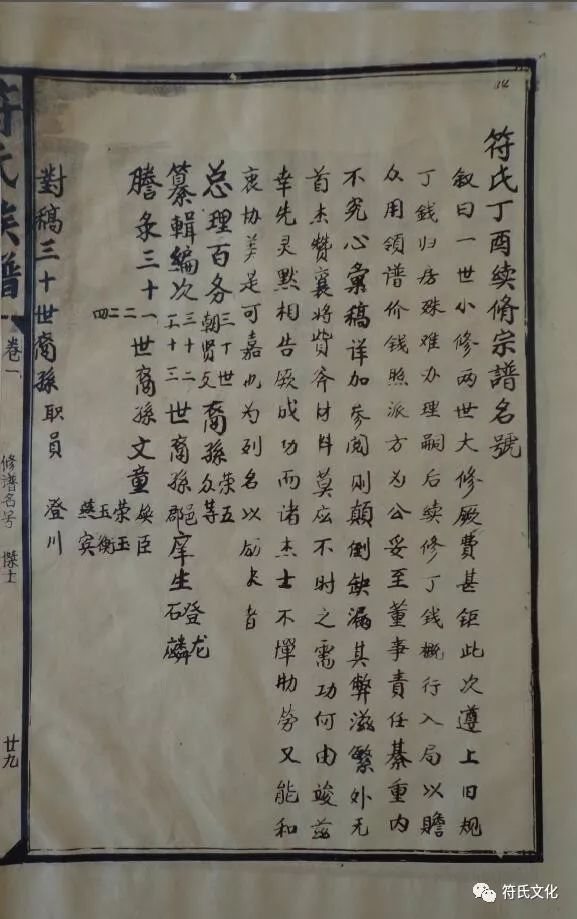 符氏丁酉续修宗譜名號
叙曰一世小修两世大修厥費甚鉅此次遵上旧规
丁銭归房殊难办理嗣后续修丁銭概行入局以贍
众用領谱价銭照派方为公妥至董事責任綦重内
不究心彙稿详加参阅则颠倒缺漏其弊滋繁外无
首士赞襄将貲斧材料莫应不时之需功何由竣兹
幸先灵默相告厥成功而诸杰士不惮劢劳又能和
衷协美是可嘉也为列名以励大者
总理百务三十世裔孫荣五
朝贤文众等
纂輯编次三十二世裔孫邑庠生登龙
三十三郡石麟
謄录三十一二二四世裔孫文童焕臣
荣玉
玉衡
燕宾
對稿三十世裔孫职員澄川
符氏族譜
卷一
修谱名号
傑士
廿九
符氏文化